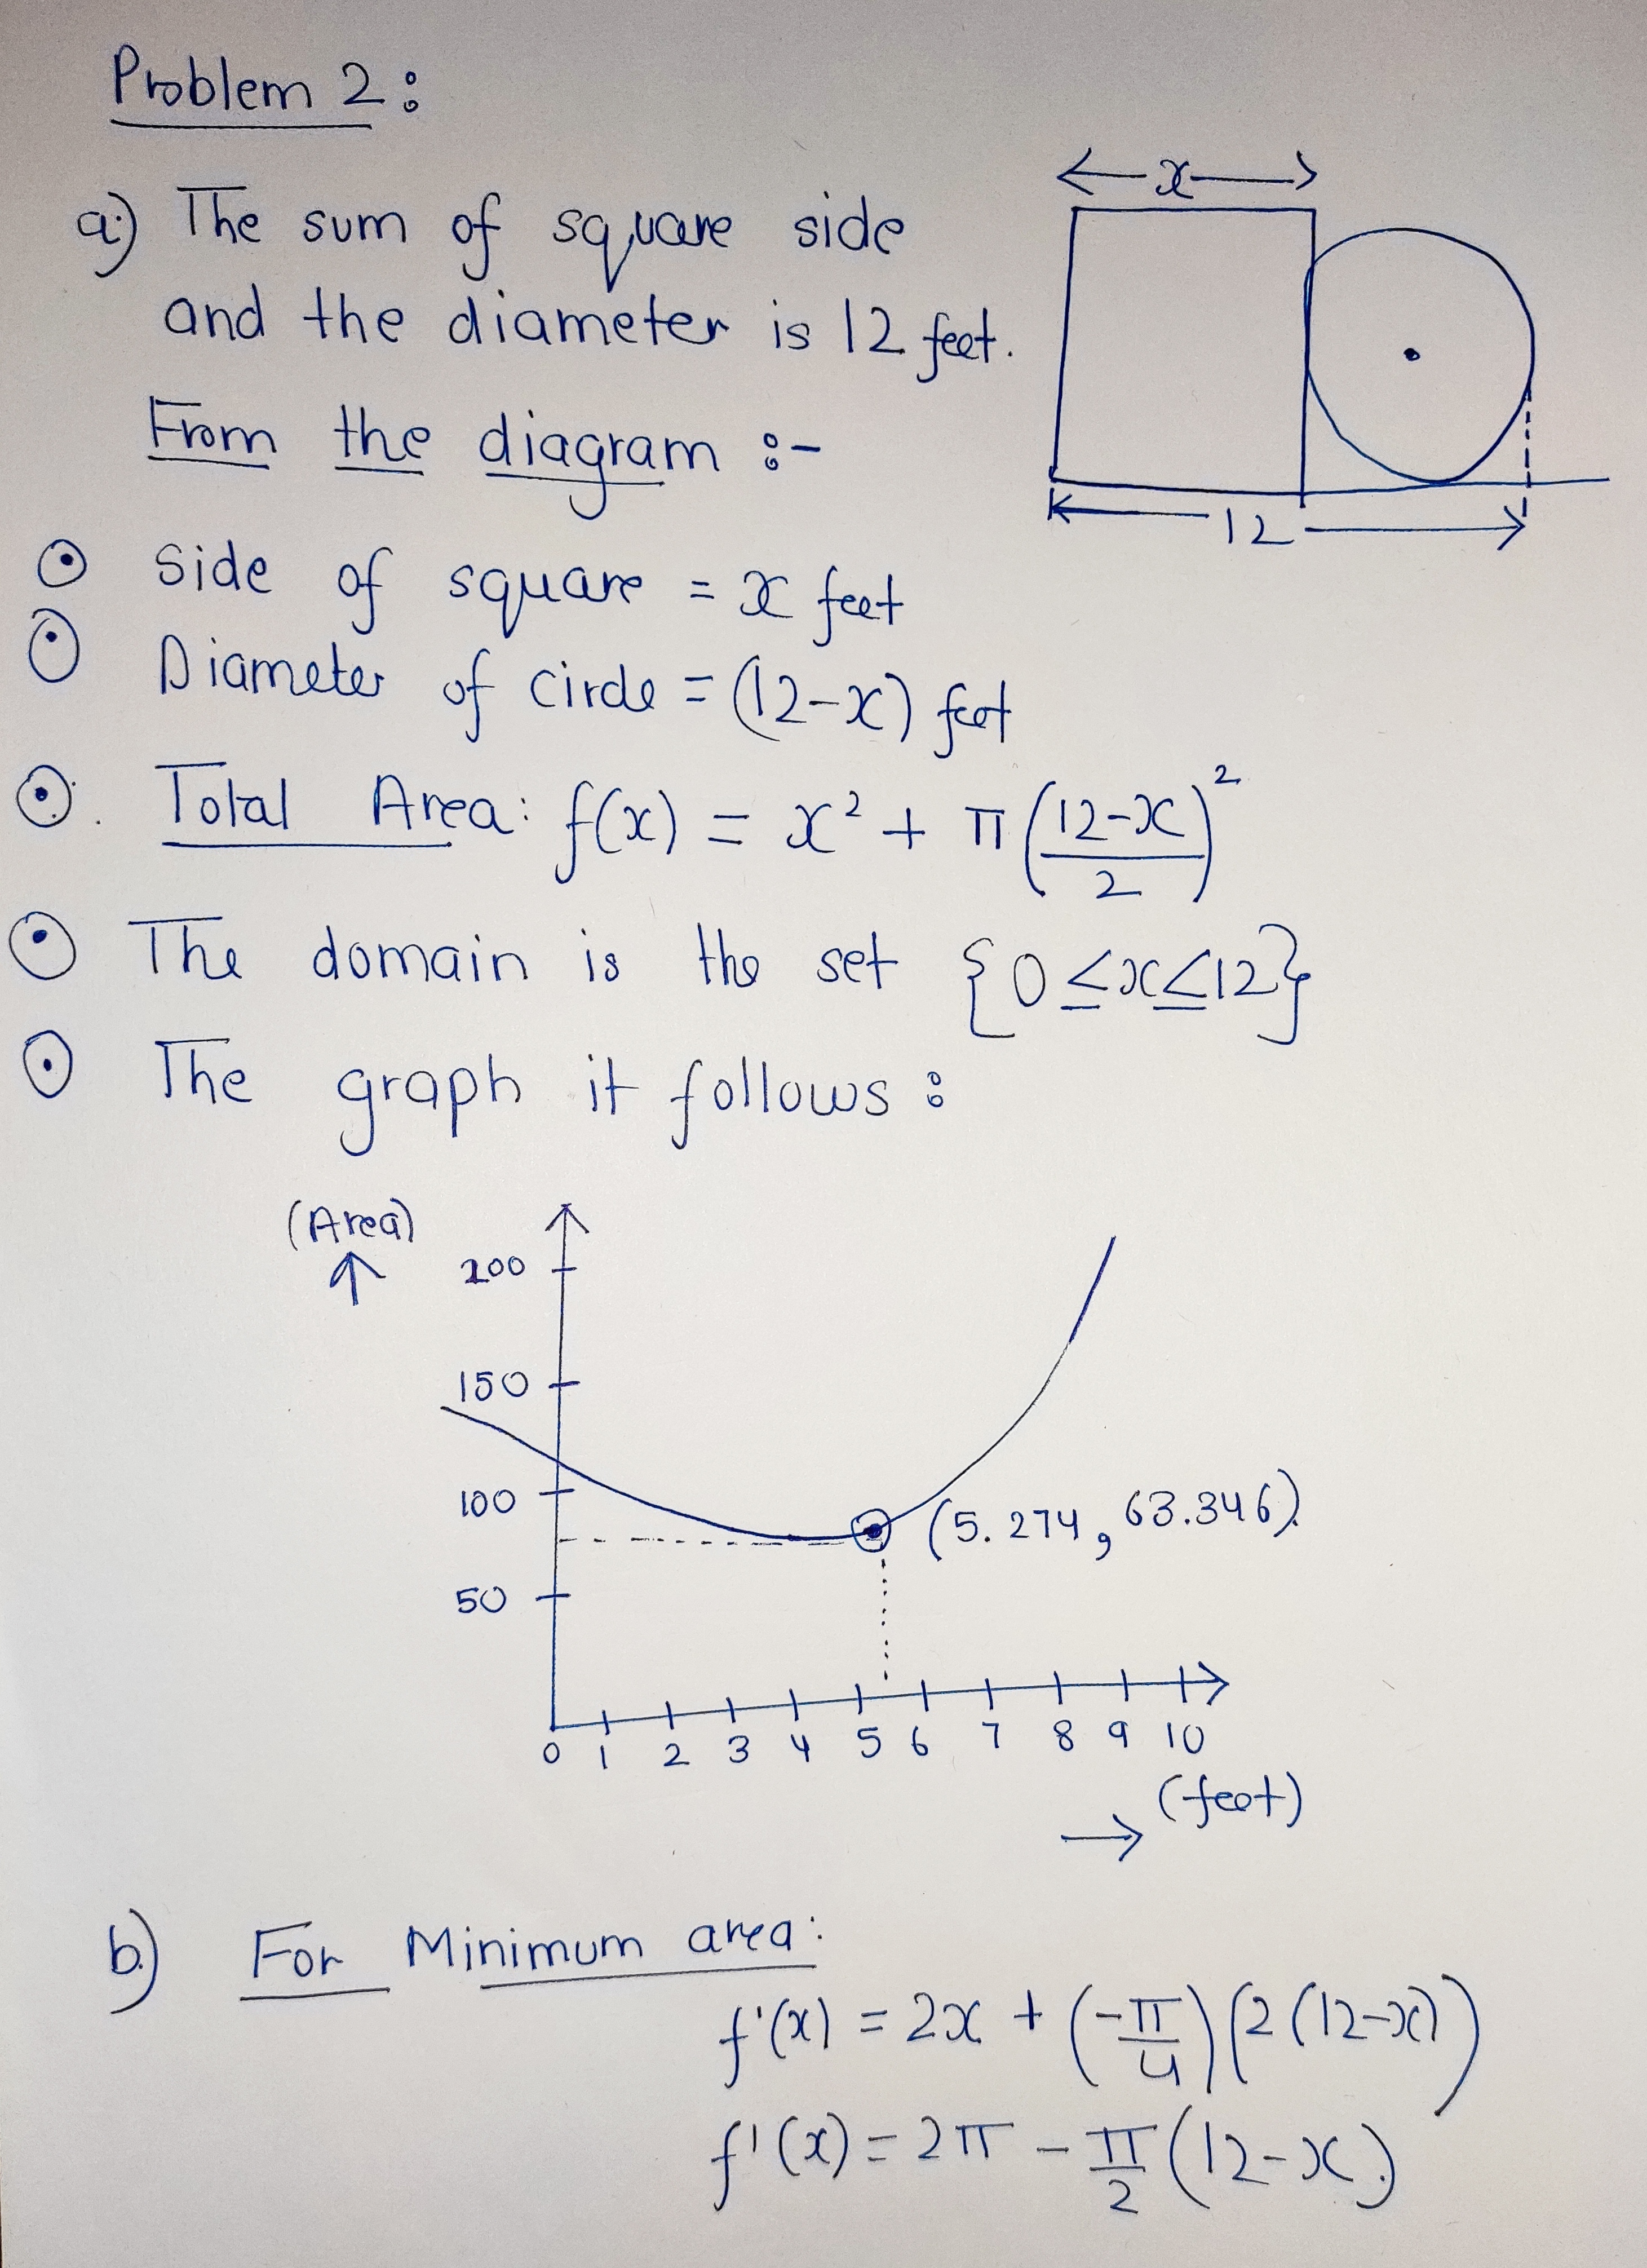 Problem 2:
a) The sum of square side
and the diameter is 12 feet.
From the diagram :-
x
12
⊙ Side of square = x feet
⊙ Diameter of circle = (12-x) feet
⊙. Total Area: f(x) = x² + π((12-x)/2)²
⊙ The domain is the set {0≤x≤12}
⊙ The graph it follows:
(Area)
↑
200
150
100
50
(5.274, 63.346)
0 1 2 3 4 5 6 7 8 9 10
→ (feet)
b) For Minimum area:
f'(x) = 2x + (-π/4)(2(12-x))
f'(x) = 2π - π/2(12-x)